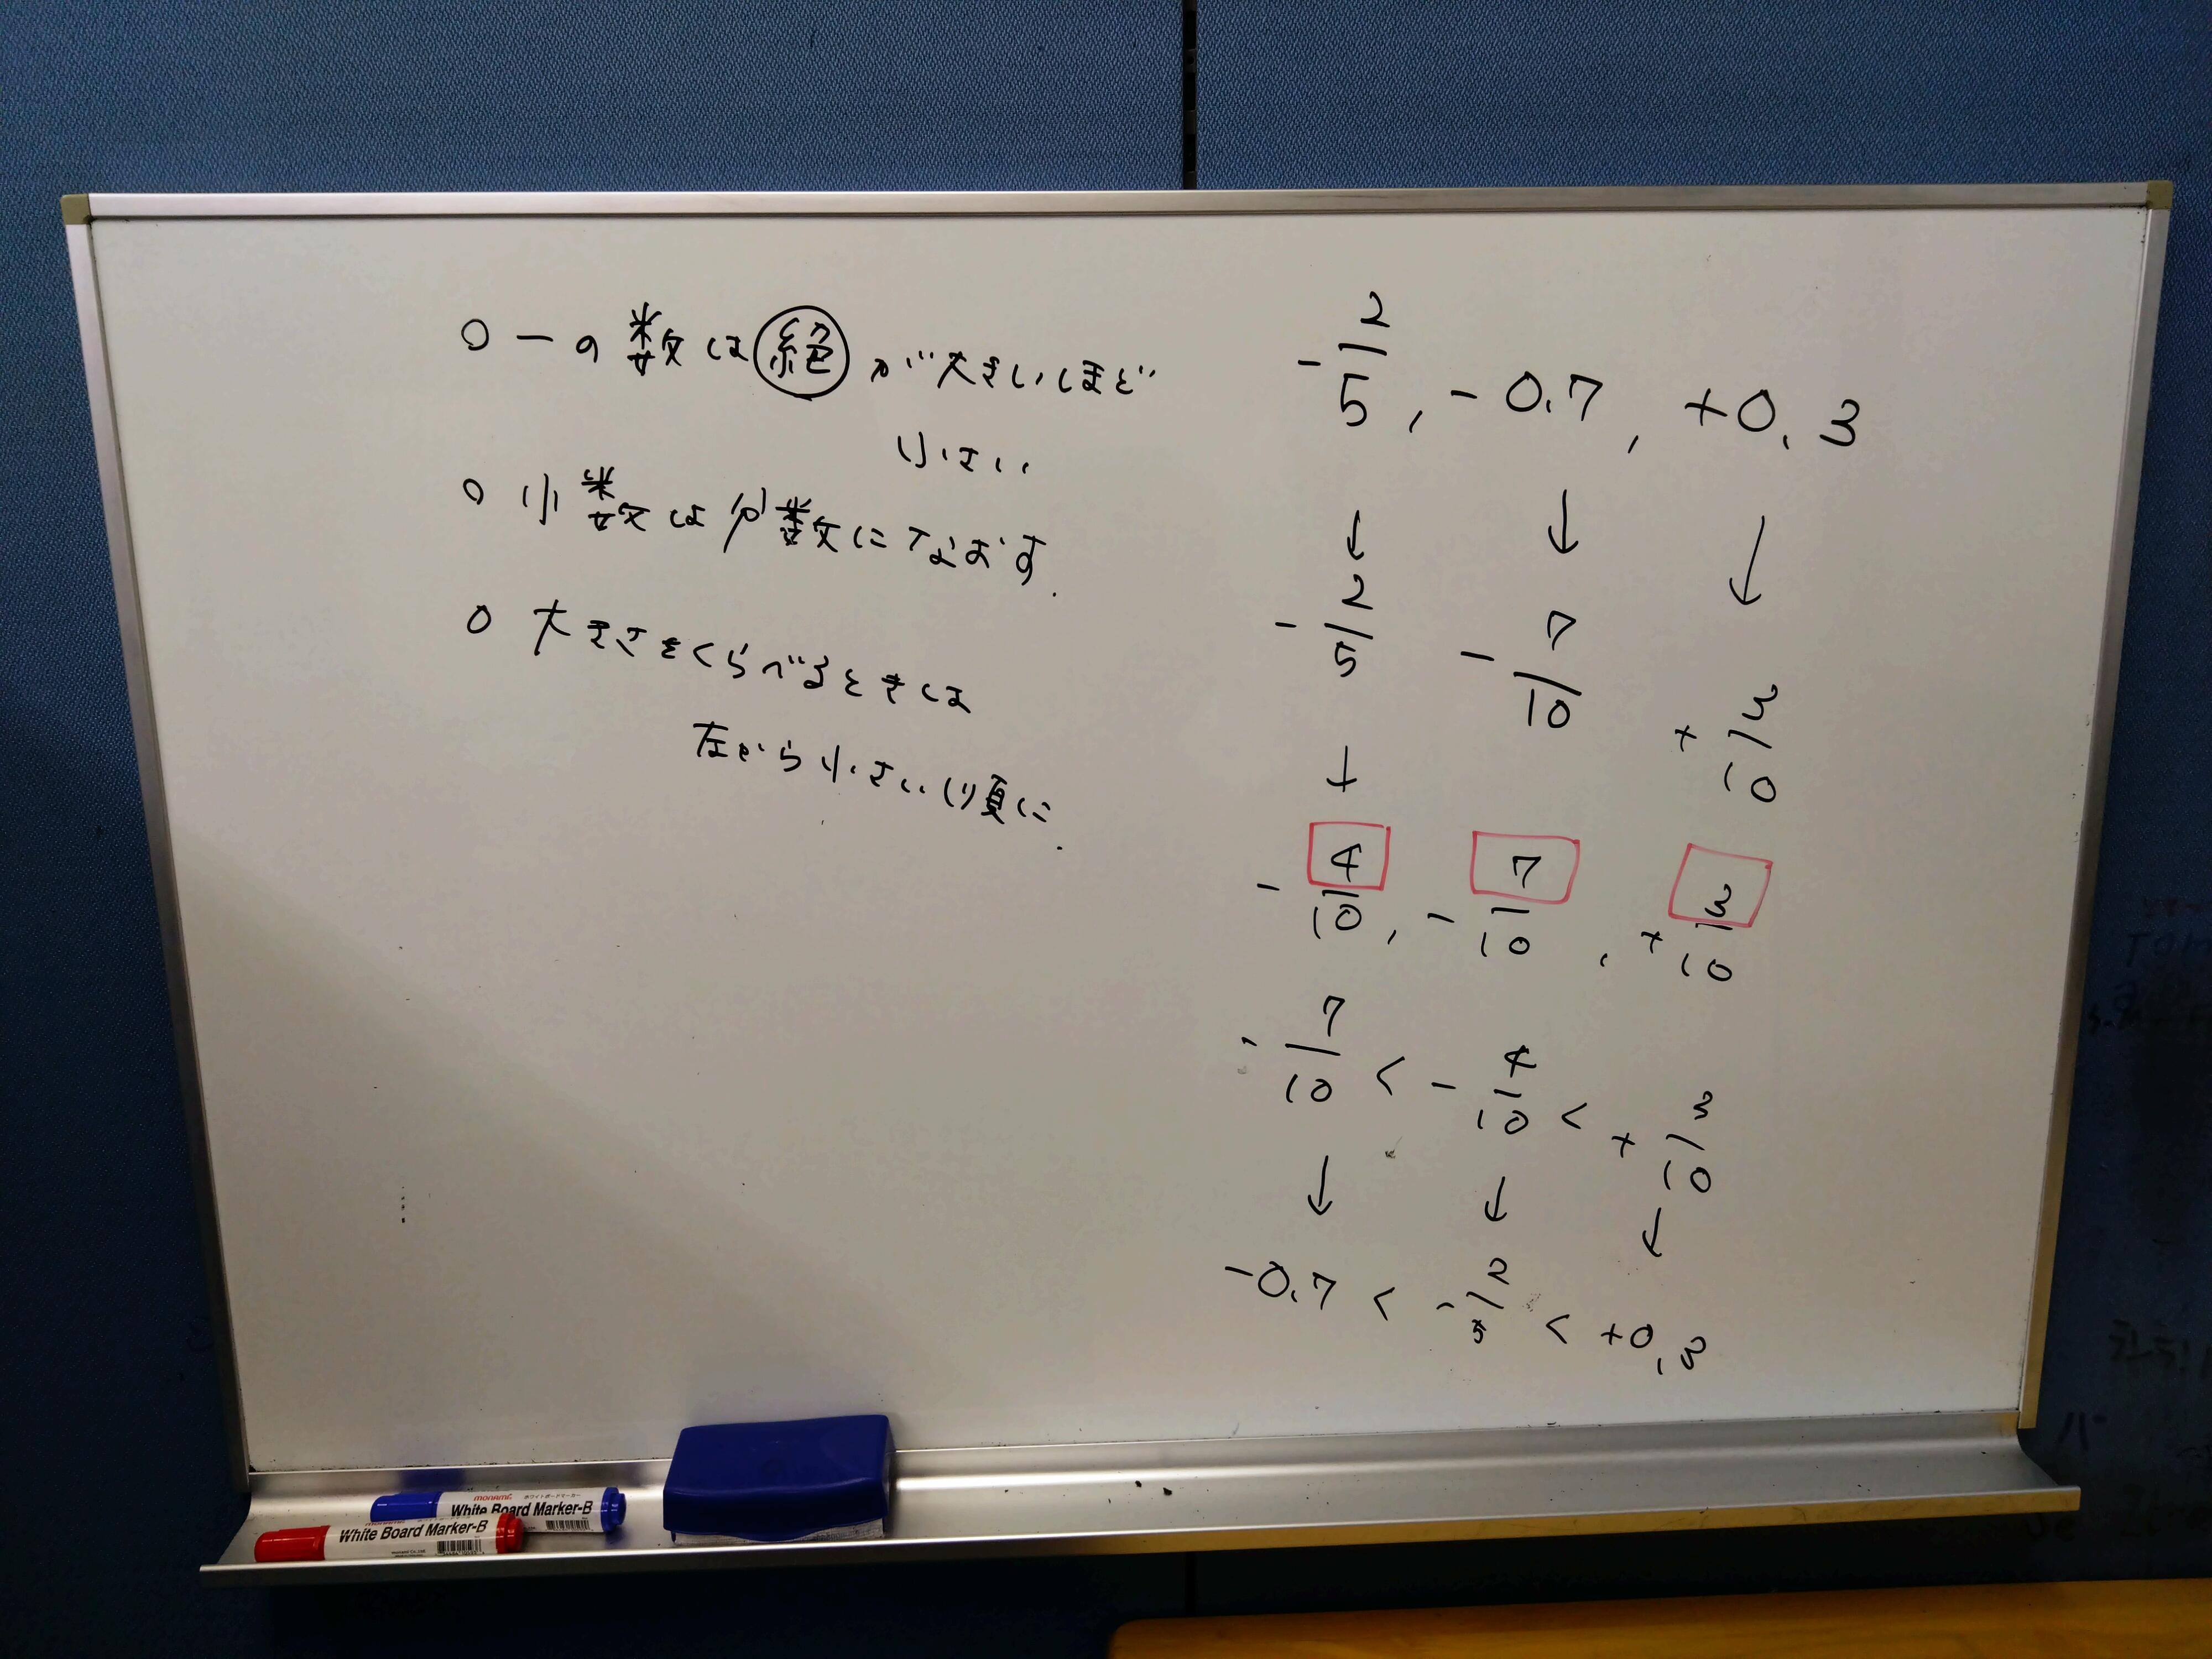 ○ ーの数は㊙絶が大きいほど
小さい
○ 小数は分数になおす.
○ 大きさをくらべるときは
左から小さい順に.
-2/5, -0.7, +0.3
↓ ↓ ↓
-2/5 -7/10 +3/10
↓
-4/10, -7/10, +3/10
-7/10 < -4/10 < +3/10
↓ ↓ ↓
-0.7 < -2/5 < +0.3
monami ホワイトボードマーカー
White Board Marker-B
White Board Marker-B